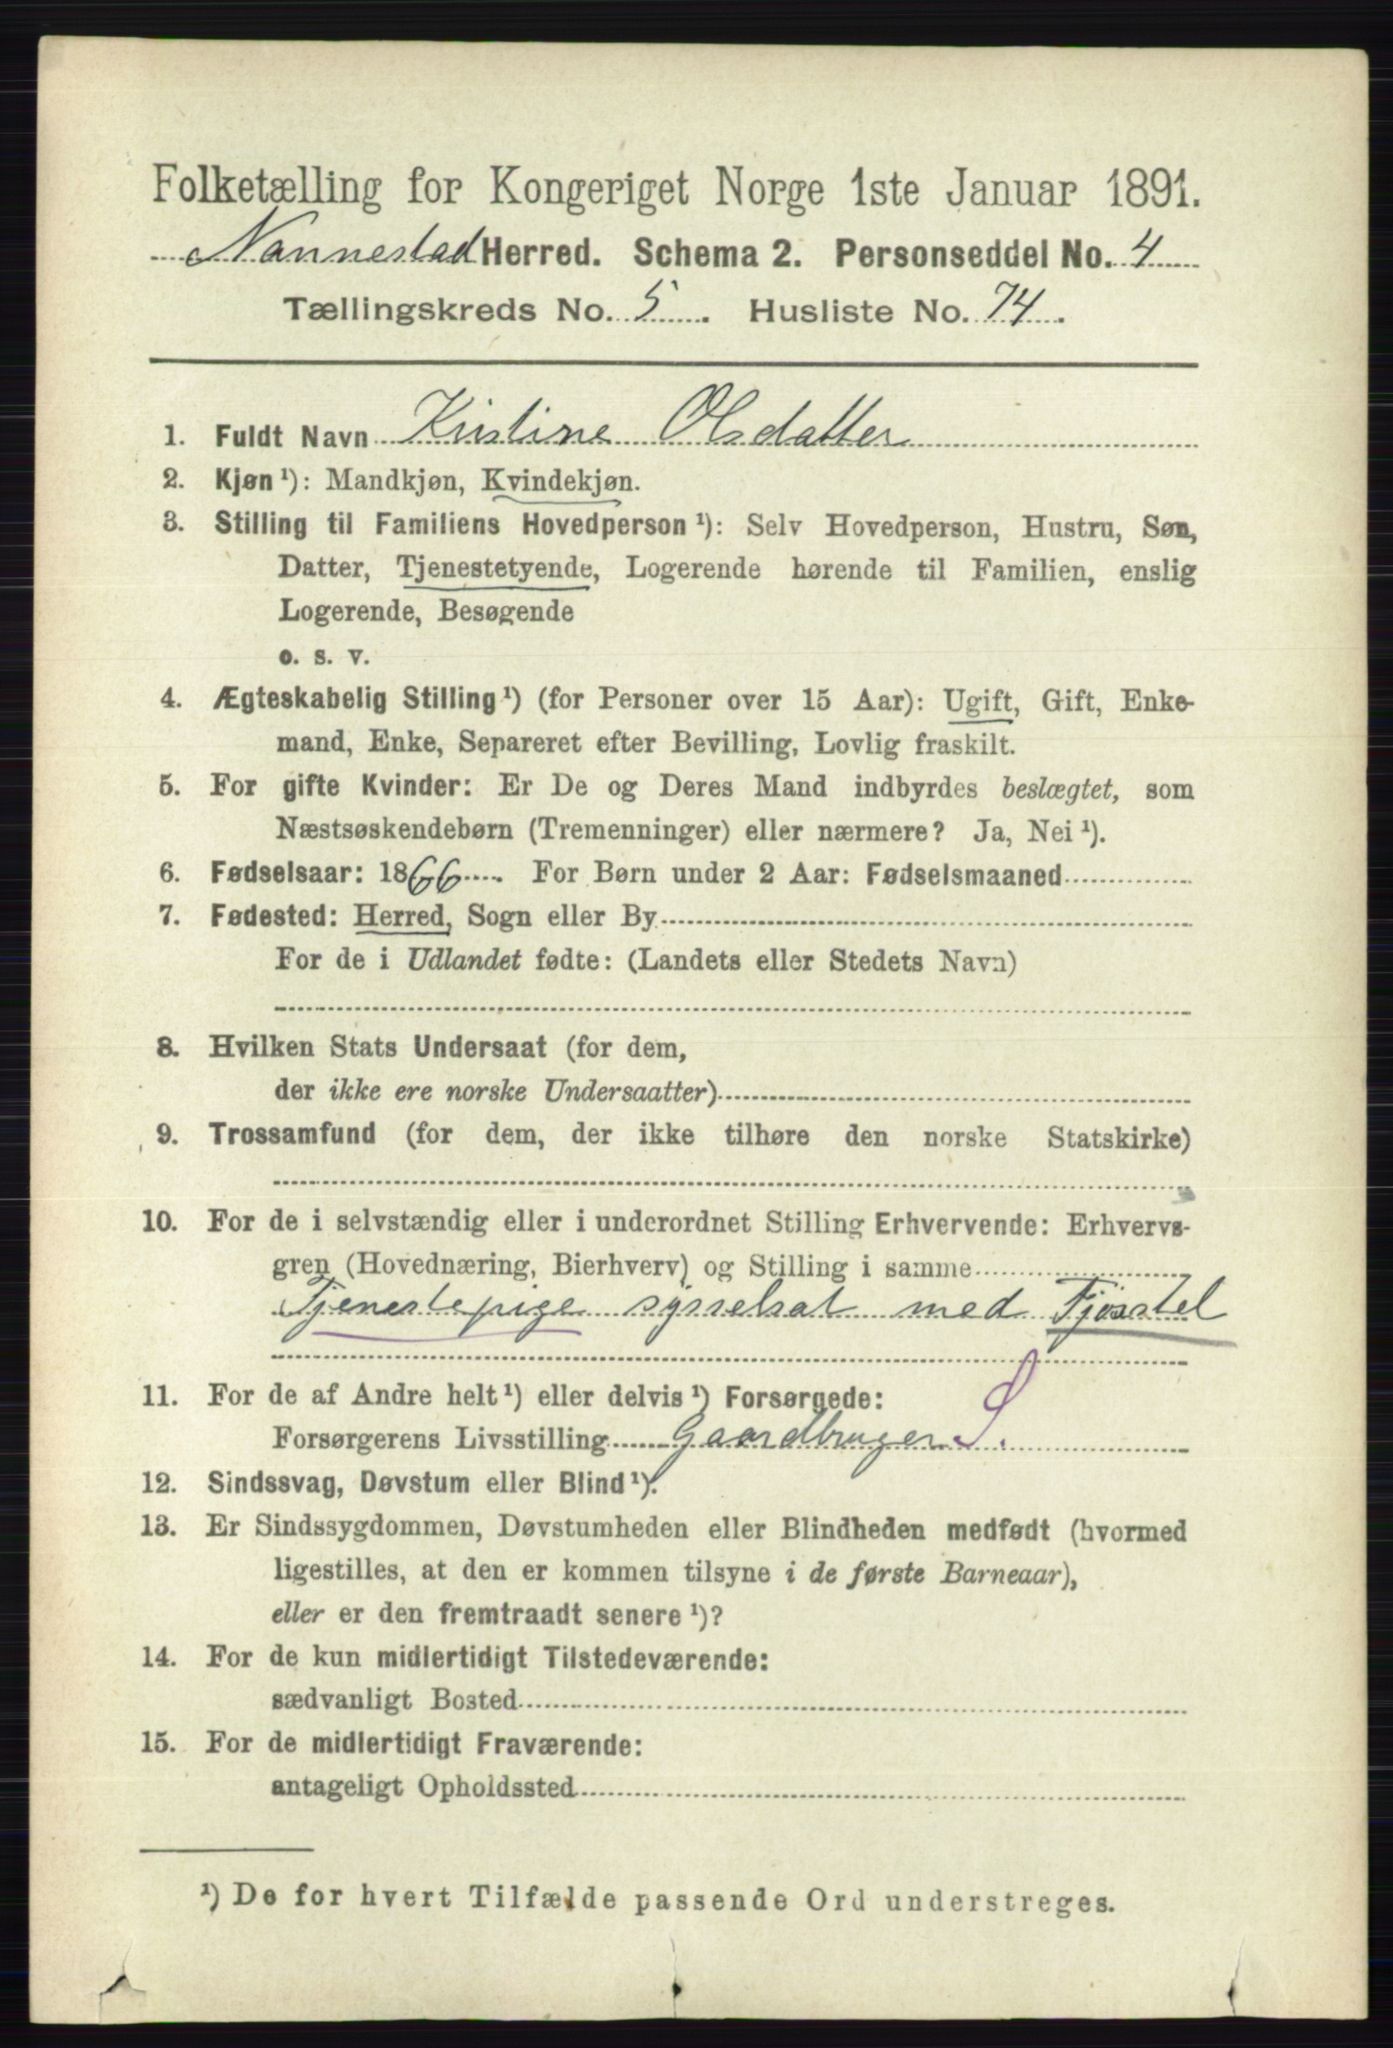 Folketælling for Kongeriget Norge 1ste Januar 1891.
Nannestad Herred. Schema 2. Personseddel No. 4
Tællingskreds No. 5. Husliste No. 74.
1. Fuldt Navn Kristine Olsdatter
2. Kjøn ¹): Mandkjøn, Kvindekjøn.
3. Stilling til Familiens Hovedperson ¹): Selv Hovedperson, Hustru, Søn,
Datter, Tjenestetyende, Logerende hørende til Familien, enslig
Logerende, Besøgende
o. s. v.
4. Ægteskabelig Stilling ¹) (for Personer over 15 Aar): Ugift, Gift, Enke-
mand, Enke, Separeret efter Bevilling, Lovlig fraskilt.
5. For gifte Kvinder: Er De og Deres Mand indbyrdes beslægtet, som
Næstsøskendebørn (Tremenninger) eller nærmere? Ja, Nei ¹).
6. Fødselsaar: 1866. For Børn under 2 Aar: Fødselsmaaned
7. Fødested: Herred, Sogn eller By
For de i Udlandet fødte: (Landets eller Stedets Navn)
8. Hvilken Stats Undersaat (for dem,
der ikke ere norske Undersaatter)
9. Trossamfund (for dem, der ikke tilhøre den norske Statskirke)
10. For de i selvstændig eller i underordnet Stilling Erhvervende: Erhvervs-
gren (Hovednæring, Bierhverv) og Stilling i samme
Tjenestepige sysselsat med Fjøsstel
11. For de af Andre helt ¹) eller delvis ¹) Forsørgede:
Forsørgerens Livsstilling Gaardbruger S.
12. Sindssvag, Døvstum eller Blind ¹).
13. Er Sindssygdommen, Døvstumheden eller Blindheden medfødt (hvormed
ligestilles, at den er kommen tilsyne i de første Barneaar),
eller er den fremtraadt senere ¹)?
14. For de kun midlertidigt Tilstedeværende:
sædvanligt Bosted
15. For de midlertidigt Fraværende:
antageligt Opholdssted
¹) De for hvert Tilfælde passende Ord understreges.